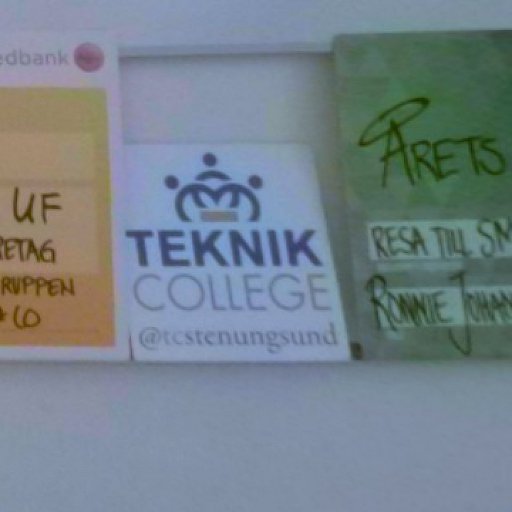 edbank
UF
ETAG
RUPPEN
TEKNIK
COLLEGE
@tcstenungsund
ÅRETS
RESA TILL SM
RONNIE JOHAN